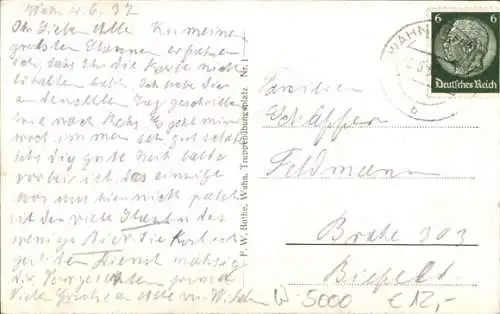 Wahn 4.6.37
Ihr Lieben Alle Zu meinem
großen Staunen erfahre
ich, daß ihr die Karte nicht
erhalten habt. Ich habe den
an denselben Tag geschrieben
wie nach Haus. Es geht mir
noch immer sehr gut
gute
vorbei ist das einzige
was mir hier nicht paßt
ist der viele und das
wenige Bier. Die Kost ist
gut. der Dienst mäßig
die Vorgesetzten
Viele Grüße an Alle von Wilhelm
F. W. Rothe, Wahn, Truppenübungsplatz. Nr. 1
WAHN
6 6
Deutsches Reich
b
Familien
Schäpper
Feldmann
Brake 303
Bielefeld.
W 5000 €12,-